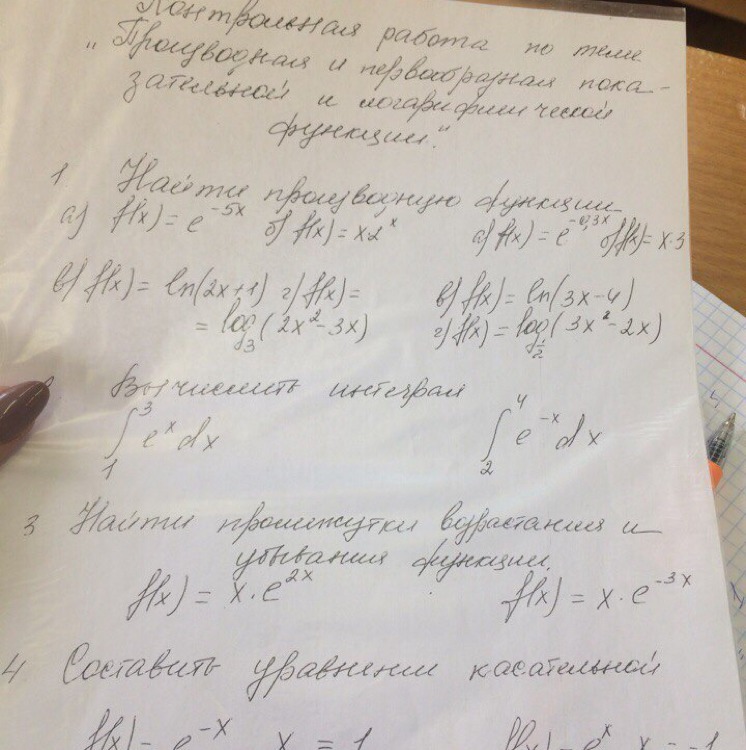 Контрольная работа по теме
„Производная и первообразная пока-
зательной и логарифмической
функции."
1 Найти производную функции
а) f(x) = e^{-5x} б) f(x) = x·2^x а) f(x) = e^{-0,3x} б) f(x) = x·3
в) f(x) = ln(2x+1) г) f(x) = в) f(x) = ln(3x-4)
= log_3(2x^2-3x) г) f(x) = log_{1/2}(3x^2-2x)
Вычислить интеграл
∫_1^3 e^x dx ∫_2^4 e^{-x} dx
3 Найти промижутки возрастания и
убывания функции.
f(x) = x·e^{2x} f(x) = x·e^{-3x}
4 Составить уравнении касательной
f(x) = e^{-x} x = 1 f(x) = e^x x = -1